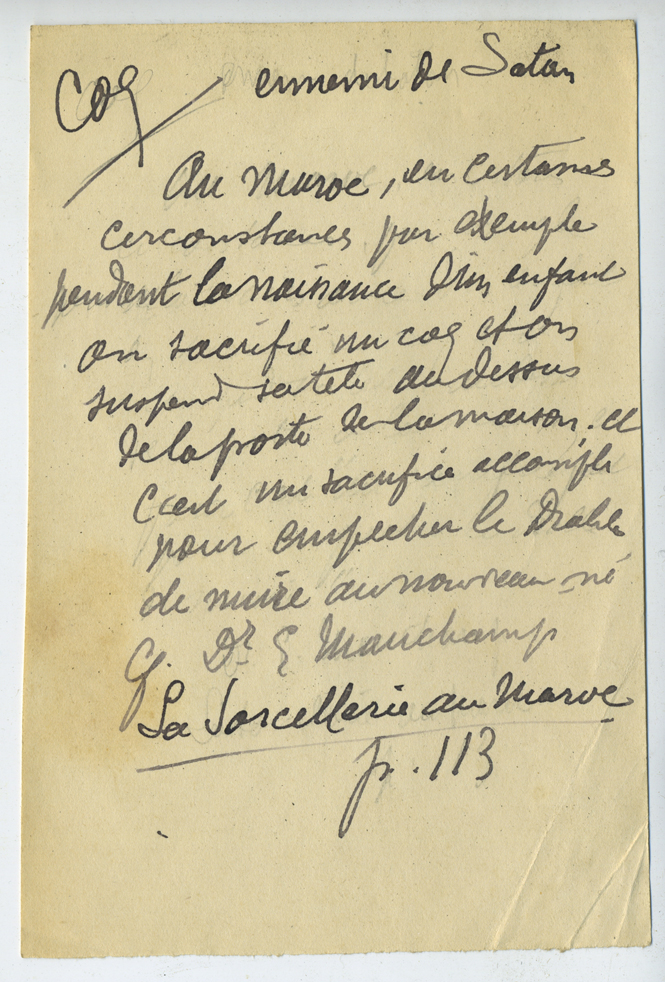 Coq ennemi de Satan
Au Maroc, en certaines
circonstances par exemple
pendant la naissance d'un enfant
on sacrifie un coq et on
suspend sa tête au dessus
de la porte de la maison. et
c'est un sacrifice accompli
pour empêcher le Diable
de nuire au nouveau-né
Cf. Dr E Mauchamp
La Sorcellerie au Maroc
p. 113